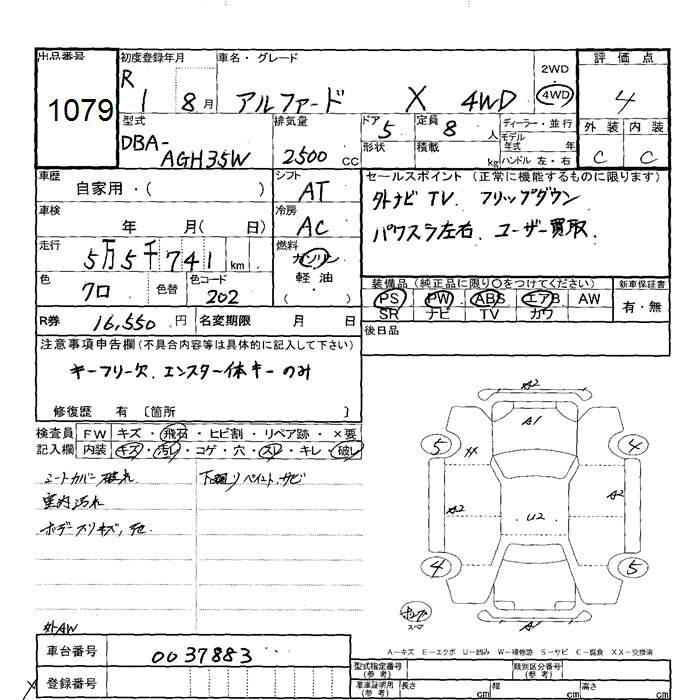 出品番号 初度登録年月 車名・グレード 2WD 評価点
1079 R 1 8月 アルファード X 4WD 4WD 4
型式 排気量 ドア 5 定員 8 人 ディーラー・並行 外装 内装
DBA- 形状 積載 kg モデル年式 年 C C
AGH35W 2500 CC ハンドル 左・右
車歴 シフト セールスポイント (正常に機能するものに限ります)
自家用・( ) AT 外ナビ TV. フリップダウン
車検 冷房 パワスラ左右. ユーザー買取.
年 月( 日) AC
走行 燃料
5万5千741 km ガソリン
色 色替 色コード 軽油 装備品(純正品に限り○をつけてください) 新車保証書
クロ 202 ( ) PS PW ABS エアB AW 有・無
SR ナビ TV カワ
R券 16,550 円 名変期限 月 日 後日品
注意事項申告欄(不具合内容等は具体的に記入して下さい)
キーフリー欠. エンスター体キーのみ
修復歴 有 〔箇所 〕
検査員 FW キズ・飛石・ヒビ割・リペア跡・×要
記入欄 内装 キズ・汚れ・コゲ・穴・スレ・キレ・破れ
シートカバー破れ 下廻りペイント、サビ
室内汚れ
ボデースリキズ,
A2
A1
5 4
A2
A2 U2
4 5
A1
スマ
外AW
A-キズ E-エクボ U-凹み W-補修跡 S-サビ C-腐食 XX-交換済
車台番号 0037883
型式指定番号(参考) 類別区分番号(参考)
登録番号 車庫証明用(参考) 長さ cm 幅 cm 高さ cm